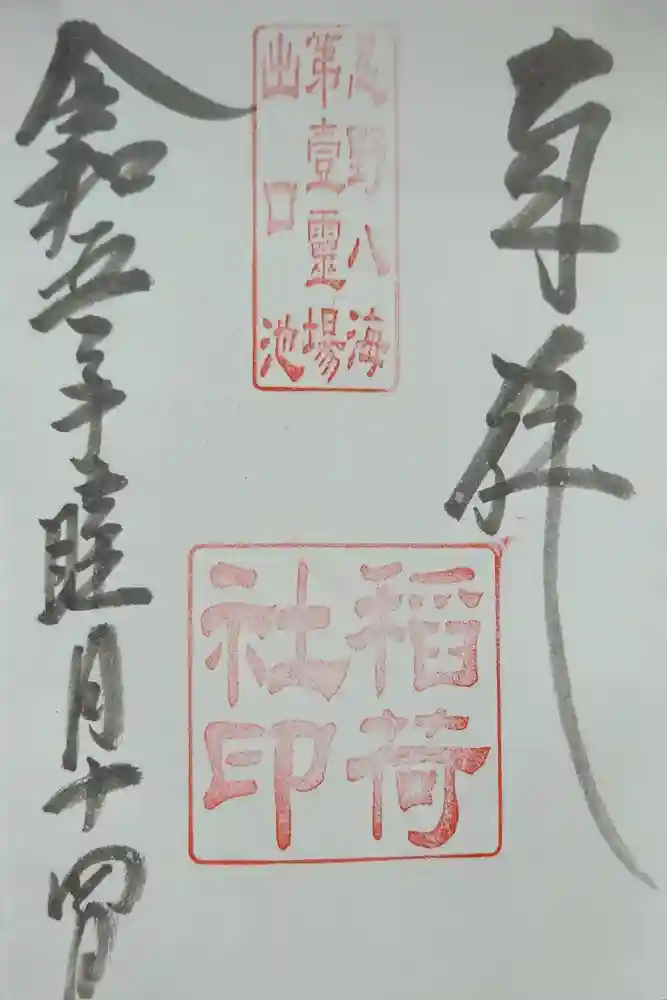 奉拝
忍野八海
第壹靈場
出口池
稲荷
社印
令和五年睦月十四日